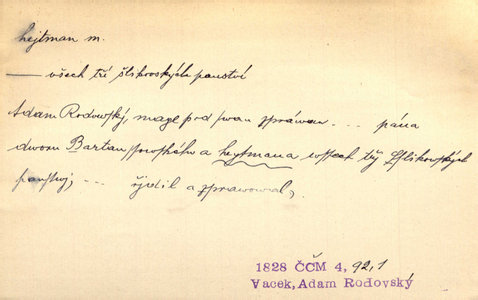 hejtman m.
— všech tří šlikovských panství
Adam Rodowský, mage pod swau zpráwau ... pána
dwora Bartan a heytmana wssech tří Sslikowských
panstwj, ... rjdil a zprawowal,
1828 ČČM 4, 92,1
Vacek, Adam Rodovský